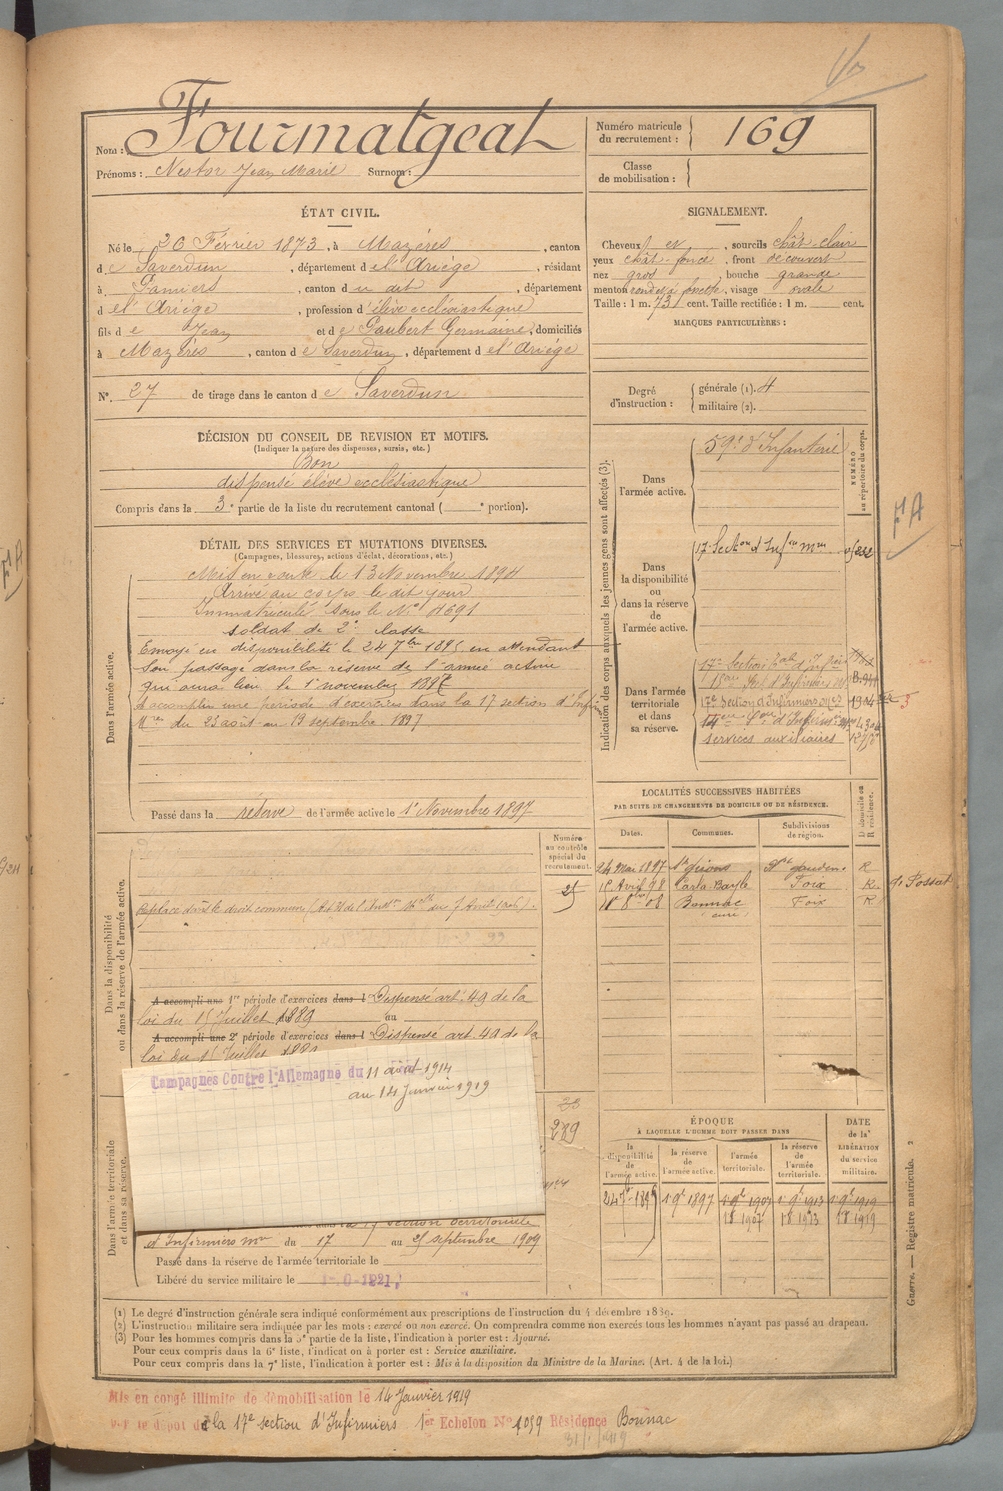 Nom : Fourmatgeat
Prénoms : Nestor Jean Marie Surnom :
Numéro matricule du recrutement : 169
Classe de mobilisation :
ÉTAT CIVIL.
Né le 26 Février 1873, à Mazères, canton
de Saverdun, département de l'Ariège, résidant
à Pamiers, canton du dit, département
de l'Ariège, profession d'élève ecclésiastique
fils de Jean et de Gaubert Germaine, domiciliés
à Mazères, canton de Saverdun, département de l'Ariège
N°. 27 de tirage dans le canton de Saverdun
SIGNALEMENT.
Cheveux et, sourcils chât-clair
yeux chât-foncé, front découvert
nez gros, bouche grande
menton rond et à fossette, visage ovale
Taille : 1 m. 73 cent. Taille rectifiée : 1 m. cent.
MARQUES PARTICULIÈRES :
Degré d'instruction :
générale (1). 4
militaire (2).
DÉCISION DU CONSEIL DE REVISION ET MOTIFS.
(Indiquer la nature des dispenses, sursis, etc.)
Bon
dispensé élève ecclésiastique
Compris dans la 3e partie de la liste du recrutement cantonal ( e portion).
DÉTAIL DES SERVICES ET MUTATIONS DIVERSES.
(Campagnes, blessures, actions d'éclat, décorations, etc.)
Dans l'armée active.
Mis en route le 13 Novembre 1894
Arrivé au corps le dit jour
Immatriculé sous le N°
soldat de 2e classe
Envoyé en disponibilité le 24 7bre 1895 en attendant
son passage dans la réserve de l'armée active
qui aura lieu le 1er novembre 1897
A accompli une période d'exercices dans la 17 section d'Infir
Mres du 23 août au 19 septembre 1897
Passé dans la réserve de l'armée active le 1er Novembre 1897
Indication des corps auxquels les jeunes gens sont affectés (3).
NUMÉRO au répertoire du corps.
Dans l'armée active.
59e d'Infanterie
Dans la disponibilité ou dans la réserve de l'armée active.
17e Section d'Infres mres
Dans l'armée territoriale et dans sa réserve.
17e Section
18e Sect. d'Infirmiers
17e Section d'Infirmiers
services auxiliaires
FA
LOCALITÉS SUCCESSIVES HABITÉES
PAR SUITE DE CHANGEMENTS DE DOMICILE OU DE RÉSIDENCE.
Dates. Communes. Subdivisions de région. D domicile ou R résidence.
24 Mai 1897 St Girons St Gaudens R
15 Avril 98 Carla-Bayle Foix R.
8bre 08 Bonnac Foix R
(curé)
Numéro au contrôle spécial du recrutement.
25
Dans la disponibilité ou dans la réserve de l'armée active.
Replacé dans le droit commun
A accompli une 1re période d'exercices dans l Dispensé art. 49 de la
loi du 15 Juillet 1889 au
A accompli une 2e période d'exercices dans l Dispensé art. 49 de la
loi du 15 Juillet 1889
Campagnes Contre l'Allemagne du 11 août 1914
au 14 Janvier 1919
289
Dans l'armée territoriale et dans sa réserve.
section territoriale
d'Infirmiers mres du 17 au 25 septembre 1909
Passé dans la réserve de l'armée territoriale le
Libéré du service militaire le
ÉPOQUE
À LAQUELLE L'HOMME DOIT PASSER DANS
la disponibilité de l'armée active. la réserve de l'armée active. l'armée territoriale. la réserve de l'armée territoriale. DATE de la LIBÉRATION du service militaire.
24 7bre 1895 1 9e 1897 1 9e 1907 1 9e 1913 1 9e 1919
1 8 1907 1 8 1913 1 8 1919
Guerre. — Registre matricule. 2
(1) Le degré d'instruction générale sera indiqué conformément aux prescriptions de l'instruction du 4 décembre 1889.
(2) L'instruction militaire sera indiquée par les mots : exercé ou non exercé. On comprendra comme non exercés tous les hommes n'ayant pas passé au drapeau.
(3) Pour les hommes compris dans la 5e partie de la liste, l'indication à porter est : Ajourné.
Pour ceux compris dans la 6e liste, l'indication à porter est : Service auxiliaire.
Pour ceux compris dans la 7e liste, l'indication à porter est : Mis à la disposition du Ministre de la Marine. (Art. 4 de la loi.)
Mis en congé illimité de démobilisation le 14 Janvier 1919
Par le dépôt de la 17e section d'Infirmiers 1er Echelon No 1059 Résidence Bonnac